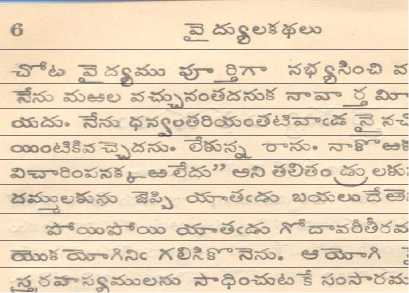 6 వైద్యులకథలు
చోట వైద్యము పూర్తిగా నభ్యసించి వ
నేను మఱల వచ్చునంతదనుక నావార్త మీ
యదు. నేను ధన్వంతరియంతటివాఁడ నై నచ
యింటికివచ్చెదను. లేకున్న రాను. నాకొఱక
విచారింపనక్కఱలేదు” అని తలితండ్రులకు
దమ్ములకును జెప్పి యాతఁడు బయలుదేఱె
పోయిపోయి యాతఁడు గోదావరీతీరవ
యొకయోగినిఁ గలిసికొనెను. ఆయోగి
స్త్రరహస్యములను సాధించుటకే సంసారమ